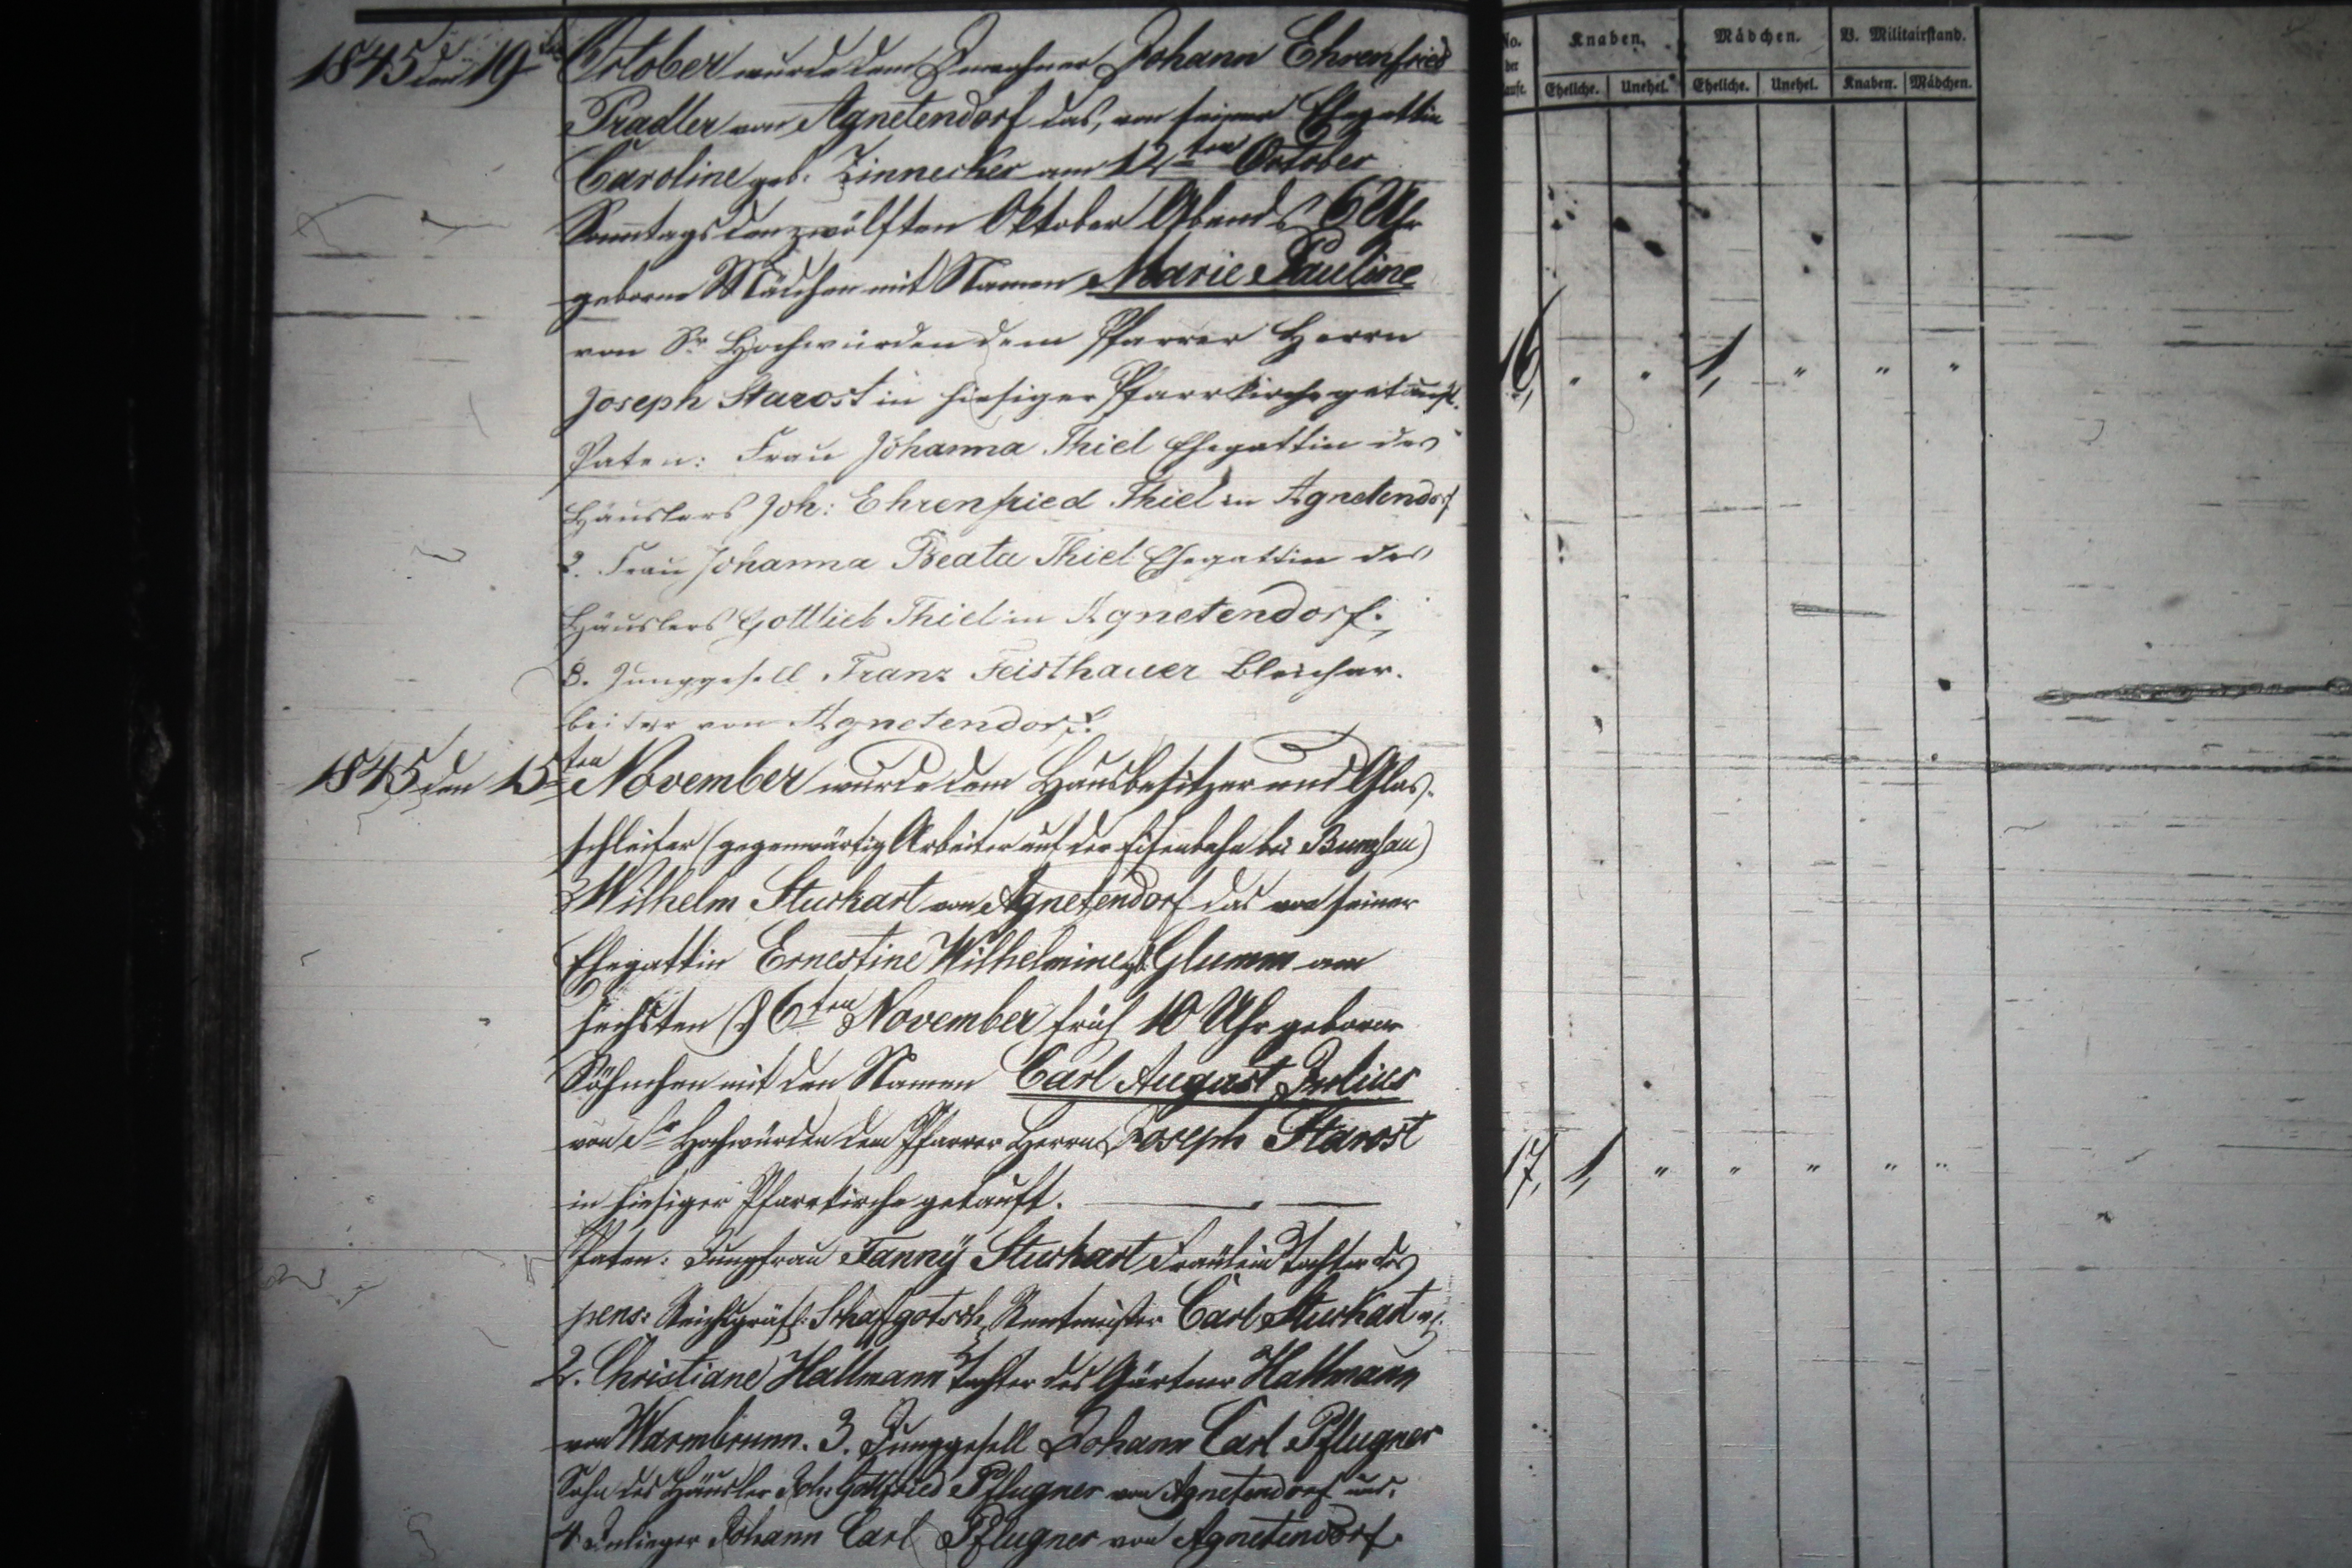 1845 den 19ten October wurde dem Inwohner Johann Ehrenfried
Pradler von Agnetendorf das, von seiner Ehegattin
Caroline geb. Zinnecker am 12ten October
Sonntags den zwölften Oktober Abends 6 Uhr
geborne Mädchen mit Namen Marie Pauline
von Sr. Hochwürden dem Pfarrer Herrn
Joseph Starost in hiesiger Pfarrkirche getauft.
Paten: Frau Johanna Thiel Ehegattin des
Häuslers Joh: Ehrenfried Thiel in Agnetendorf
2. Frau Johanna Beata Thiel Ehegattin des
Häuslers Gottlieb Thiel in Agnetendorf.
3. Junggesell Franz Feisthauer Bleichar-
beiter von Agnetendorf.
1845 den 15ten November wurde dem Hausbesitzer und Glas-
schleifer (gegenwärtig Arbeiter auf der Eisenbahn bei Bunzlau)
Wilhelm Sturkart von Agnetendorf das von seiner
Ehegattin Ernestine Wilhelmine geb: Glumm am
sechsten 6ten November früh 10 Uhr geborne
Söhnchen mit den Namen Carl August Julius
von Sr Hochwürden dem Pfarrer Herrn Joseph Starost
in hiesiger Pfarrkirche getauft.
Paten: Jungfrau Fanny Sturkart Fräulein Tochter des
pens: Reichsgräfl: Schafgotsch Rentmeister Carl Sturkart
2. Christiane Hallmann Tochter des Gärtner Hallmann
von Warmbrunn. 3. Junggesell Johann Carl Pflugner
Sohn des Häusler Joh: Gottfried Pflugner von Agnetendorf und
4 Inlieger Johann Carl Pflugner von Agnetendorf.
No. der Taufe. Knaben. Mädchen. V. Militairstand.
Eheliche. Unehel. Eheliche. Unehel. Knaben. Mädchen.
16, " " 1, " " "
17, 1, " " " " "